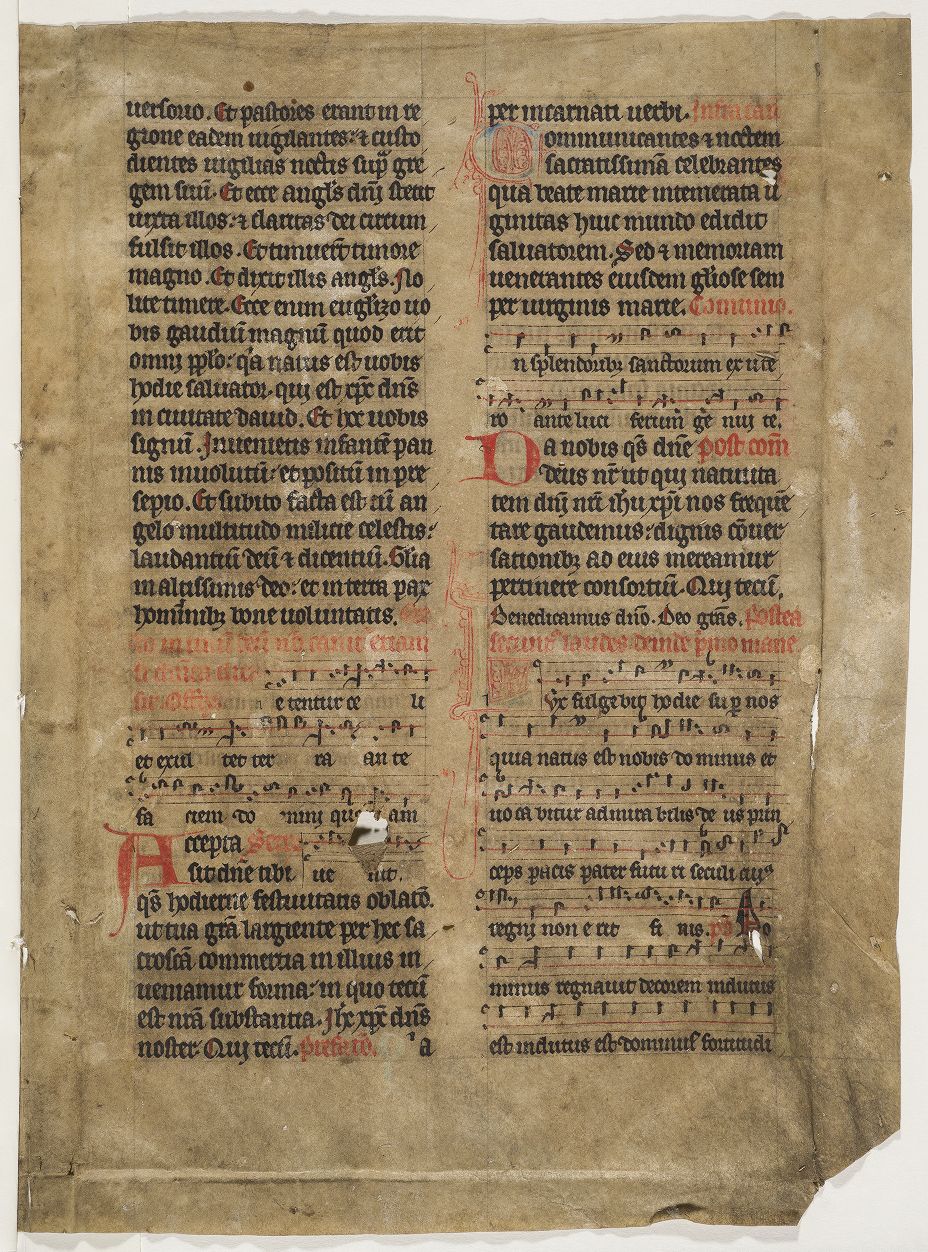 uersorio. Et pastores erant in re
gione eadem uigilantes: ⁊ custo
dientes uigilias noctis sup̄ gre
gem suū. Et ecce angl̄s dn̄j stetit
iuxta illos: ⁊ claritas dei circum
fulsit illos. Et timuer̄t timore
magno. Et dixit illis angl̄s. No
lite timere. Ecce enim eugl̄izo uo
bis gaudiū magnū quod erit
omnj pp̄lo: q̄a natus est uobis
hodie saluator. qui est xp̄c dn̄s
in ciuitate dauid. Et hec uobis
signū. Jnuenietis infantē pan
nis inuolutū: et positū in pre
sepio. Et subito facta est cū an
gelo multitudo milicie celestis:
laudantiū deū ⁊ dicentiū. Gl̄ia
in altissimis deo: et in terra pax
hominibꝫ bone uoluntatis.
e tentur ce li
et exul tet ter ra an te
fa ciem do minj qu am
ccepta Secr
A sit dn̄e tibi ue nit.
qs̄ hodierne festiuitatis oblatō.
ut tua gr̄a largiente per hec sa
crosc̄a commertia in illius in
ueniamur forma: in quo tecū
est nr̄a substantia. Jhc xp̄c dn̄s
noster. Quj tecū. Prefatō. a
per incarnati uerbi.
Communicantes ⁊ noctem
sacratissimā celebrantes
qua beate marie intemerata ui
ginitas huic mundo edidit
saluatorem. Sed ⁊ memoriam
uenerantes eiusdem gl̄iose sem
per uirginis marie. Comunio.
n splendoribꝫ sanctorum ex ute
ro ante luci ferum̄ ge nuj te.
Da nobis qs̄ dn̄e post com̄
deus nr̄ ut quj natiuita
tem dn̄j nr̄i ihu xp̄i nos freque
tare gaudemus: dignis cōuer
sationibꝫ ad eius mereamur
pertinere consortiū. Quj tecū.
Benedicamus dn̄o. Deo gr̄as. Postea
secunt͛ laudes deinde p̄mo mane.
Lux fulgebit hodie sup̄ nos
quia natus est nobis do minus et
uo ca bitur admira bilis de us prin
ceps pacis pater futu ri seculi cujꝰ
regnj non e rit fi nis. pꝰ Do
minus regnauit decorem indutus
est indutus est dominus fortitudi